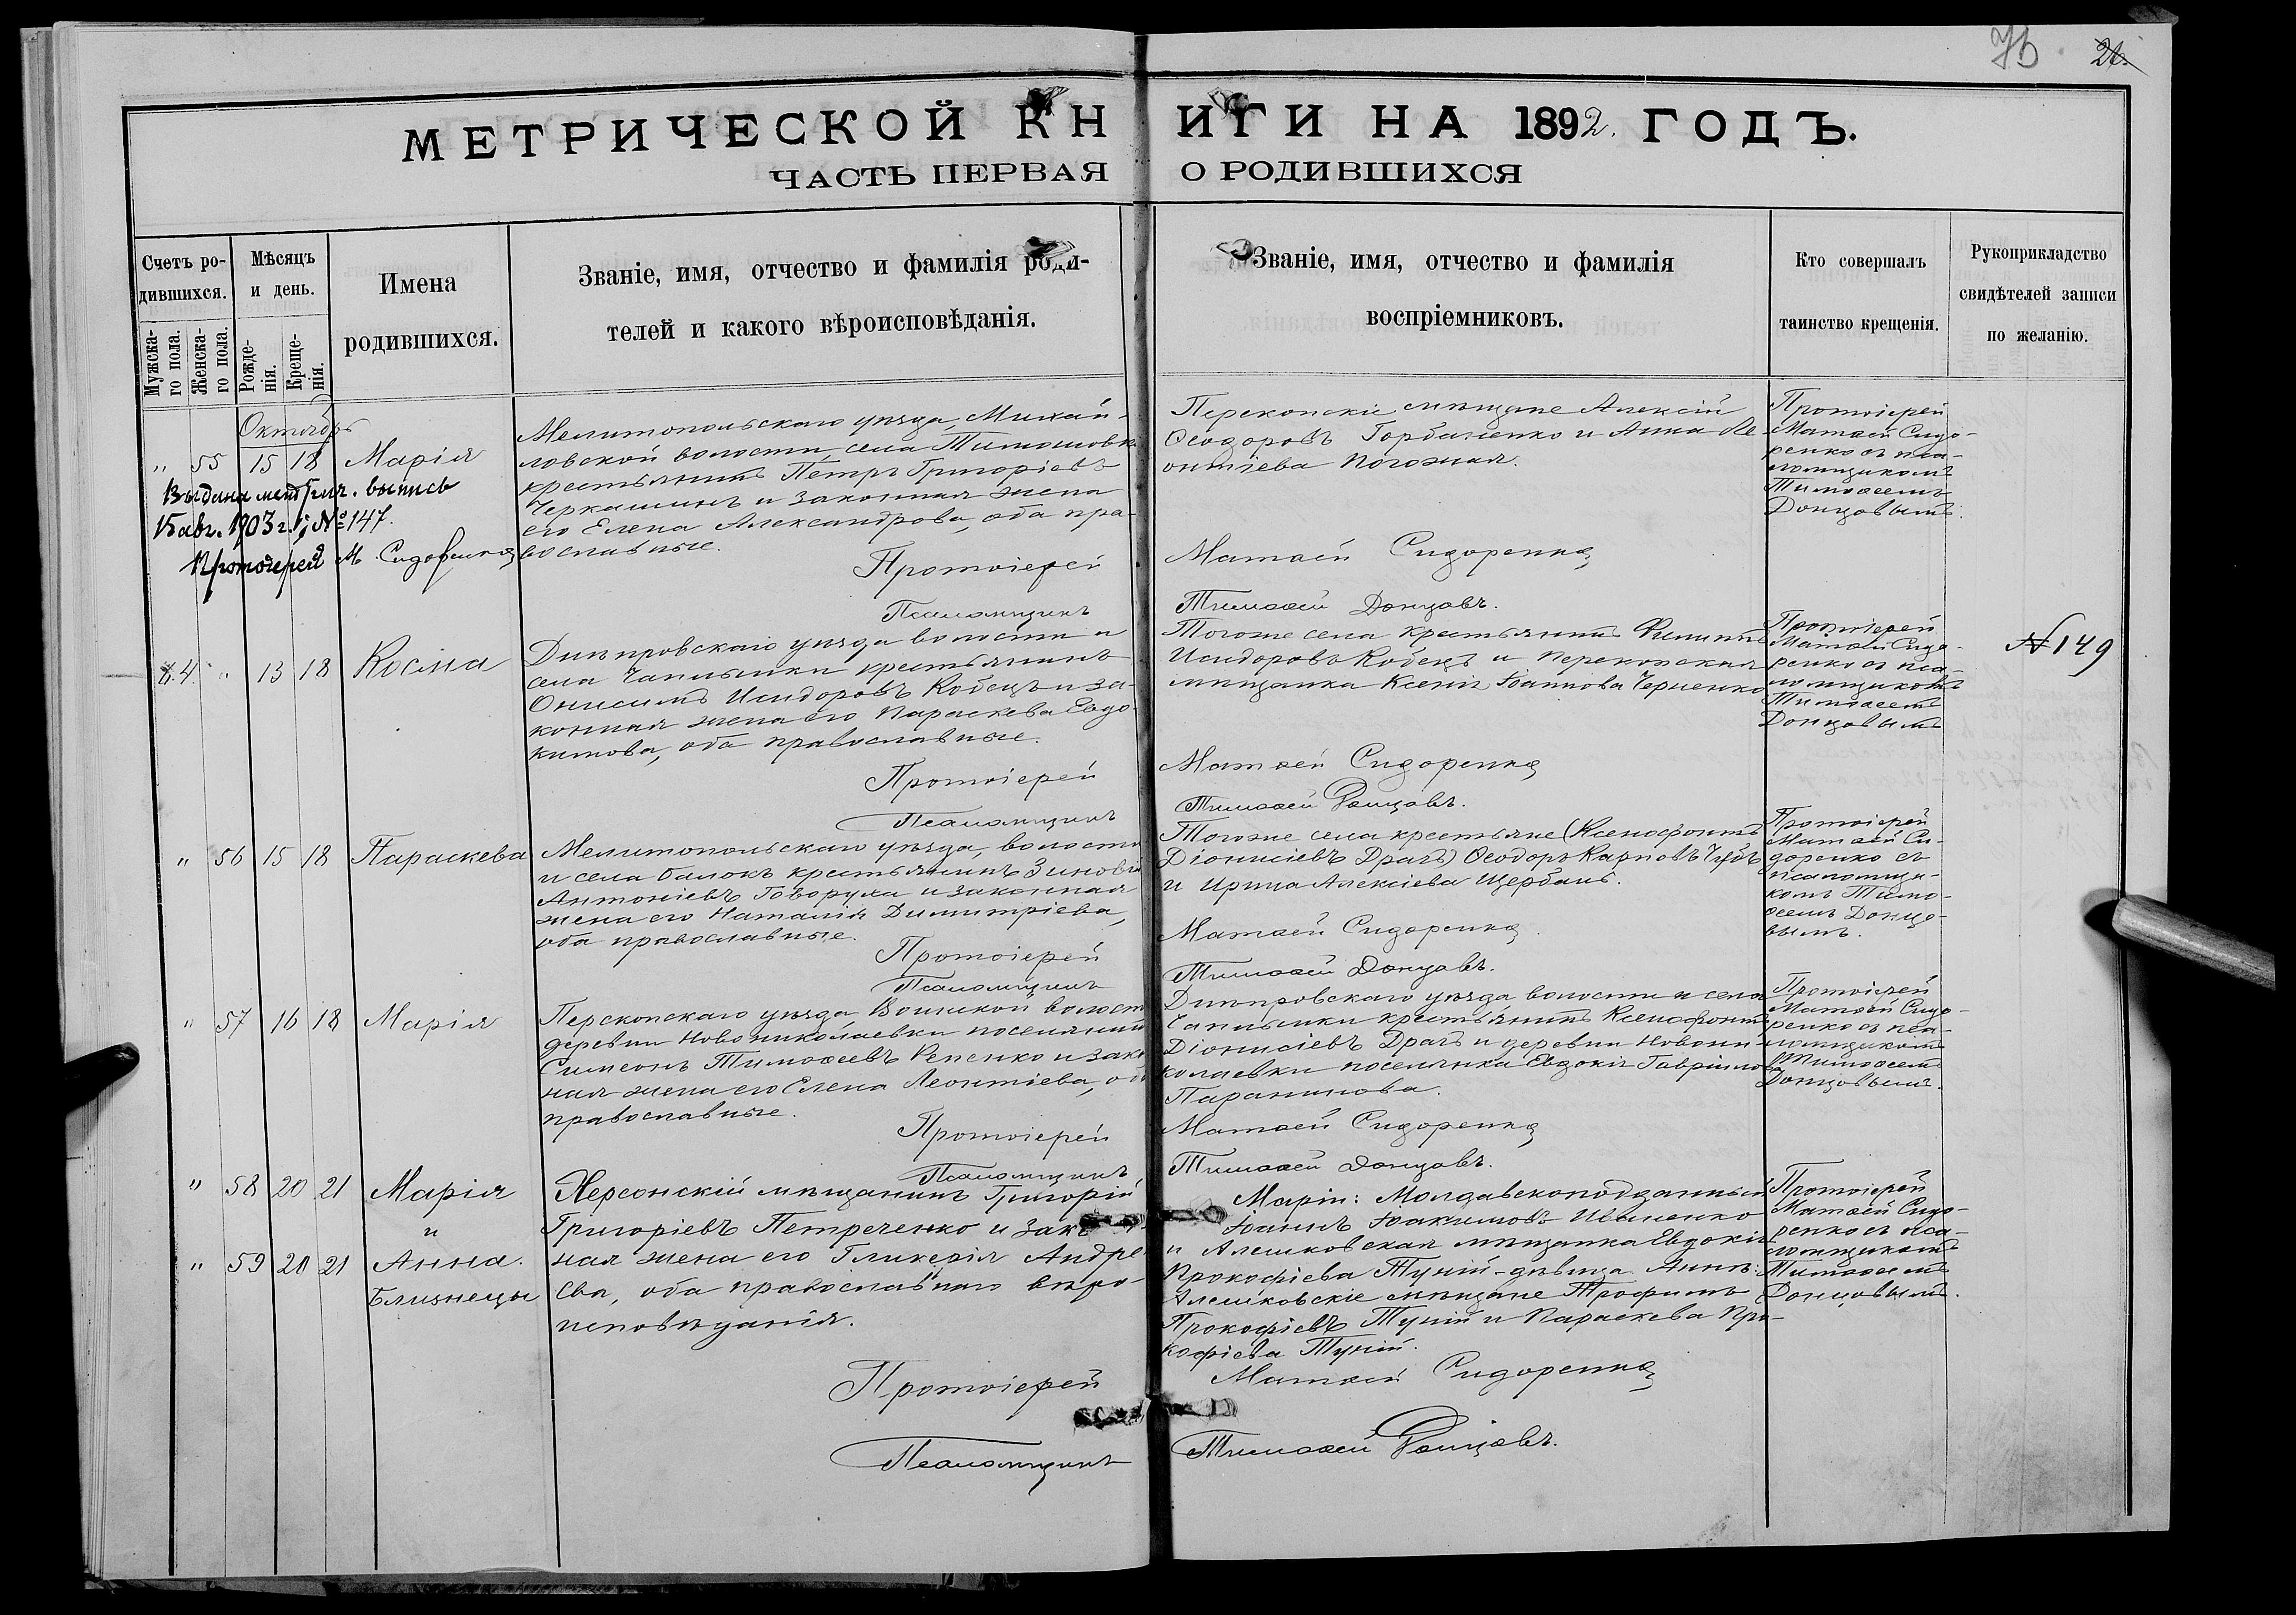 75 26.
МЕТРИЧЕСКОЙ КНИГИ НА 1892. ГОДЪ.
ЧАСТЬ ПЕРВАЯ О РОДИВШИХСЯ
Счетъ ро-
дившихся.
Мужска-
го пола.
Женска-
го пола.
Мѣсяцъ
и день.
Рожде-
нія.
Креще-
нія.
Имена
родившихся.
Званіе, имя, отчество и фамилія роди-
телей и какого вѣроисповѣданія.
Званіе, имя, отчество и фамилія
воспріемниковъ.
Кто совершалъ
таинство крещенія.
Рукоприкладство
свидѣтелей записи
по желанію.
Октябрь
" 55 15 18 Марія
Выдана метрич. выпись
15 авг. 1903 г. № 147.
Протоіерей М. Сидоренко
Мелитопольскаго уѣзда, Михай-
ловской волости, села Тимошовки
крестьянинъ Петръ Григоріевъ
Черкашинъ и законная жена
его Елена Александрова, оба пра-
вославные.
Протоіерей
Псаломщикъ
Перекопскіе мѣщане Алексій
Ѳеодоровъ Горбаненко и Анна Ле-
онтіева Погожая.
Матѳей Сидоренко
Тимоѳей Донцовъ.
Протоіерей
Матѳей Сидо-
ренко съ пса-
ломщикомъ
Тимоѳеемъ
Донцовымъ.
84 " 13 18 Косма
Днѣпровскаго уѣзда волости и
села Чаплынки крестьянинъ
Онисимъ Исидоровъ Кобецъ и за-
конная жена его Параскева Евдо-
кимова, оба православные.
Протоіерей
Псаломщикъ
Тогоже села крестьянинъ Филиппъ
Исидоровъ Кобецъ и перекопская
мѣщанка Ксенія Іоаннова Черненко
Матѳей Сидоренко
Тимоѳей Донцовъ.
Протоіерей
Матѳей Сидо-
ренко съ пса-
ломщикомъ
Тимоѳеемъ
Донцовымъ
№ 149
" 56 15 18 Параскева
Мелитопольскаго уѣзда, волости
и села Балокъ крестьянинъ Зиновій
Антоніевъ Говоруха и законная
жена его Наталія Димитріева,
оба православные.
Протоіерей
Псаломщикъ
Тогоже села крестьяне (Ксенофонтъ
Діонисіевъ Драчъ) Ѳеодоръ Карповъ
и Ирина Алексіева Щербань.
Матѳей Сидоренко
Тимоѳей Донцовъ.
Протоіерей
Матѳей Си-
доренко съ
псаломщи-
комъ Тимо-
ѳеемъ Донцо-
вымъ.
" 57 16 18 Марія
Перекопскаго уѣзда, волости
деревни Новониколаевки поселянинъ
Симеонъ Тимоѳеевъ Репенко и закон-
ная жена его Елена Леонтіева, оба
православные.
Протоіерей
Псаломщикъ
Днѣпровскаго уѣзда волости и села
Чаплынки крестьянинъ Ксенофонтъ
Діонисіевъ Драчъ и деревни Новони-
колаевки поселянка Евдокія Гавріилова
Паранинова.
Матѳей Сидоренко
Тимоѳей Донцовъ.
Протоіерей
Матѳей Сидо-
ренко съ пса-
ломщикомъ
Тимоѳеемъ
Донцовымъ.
" 58 20 21 Марія
и
" 59 20 21 Анна.
Близнецы
Херсонскій мѣщанинъ Григорій
Григоріевъ Петреченко и закон-
ная жена его Гликерія Андре-
ева, оба православнаго вѣро-
исповѣданія.
Протоіерей
Псаломщикъ
Маріи: Молдавскоподданный
Іоаннъ Іоакимовъ Иваненко
и Алешковская мѣщанка Евдокія
Прокофіева Туній-дѣвица Анны:
Алешковскіе мѣщане Трофимъ
Прокофіевъ Туній и Параскева Про-
кофіева Туній.
Матѳей Сидоренко
Тимоѳей Донцовъ.
Протоіерей
Матѳей Сидо-
ренко съ пса-
ломщикомъ
Тимоѳеемъ
Донцовымъ.